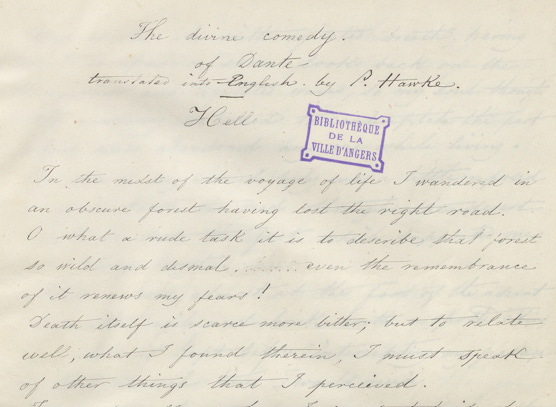 The divine comedy.
of Dante
translated into English. by P. Hawke.
Hell
BIBLIOTHÈQUE
DE LA
VILLE D'ANGERS
In the midst of the voyage of life I wandered in
an obscure forest having lost the right road.
O what a rude task it is to describe that forest
so wild and dismal........ even the remembrance
of it renews my fears!
Death itself is scarce more bitter; but to relate
well, what I found therein, I must speak
of other things that I perceived.